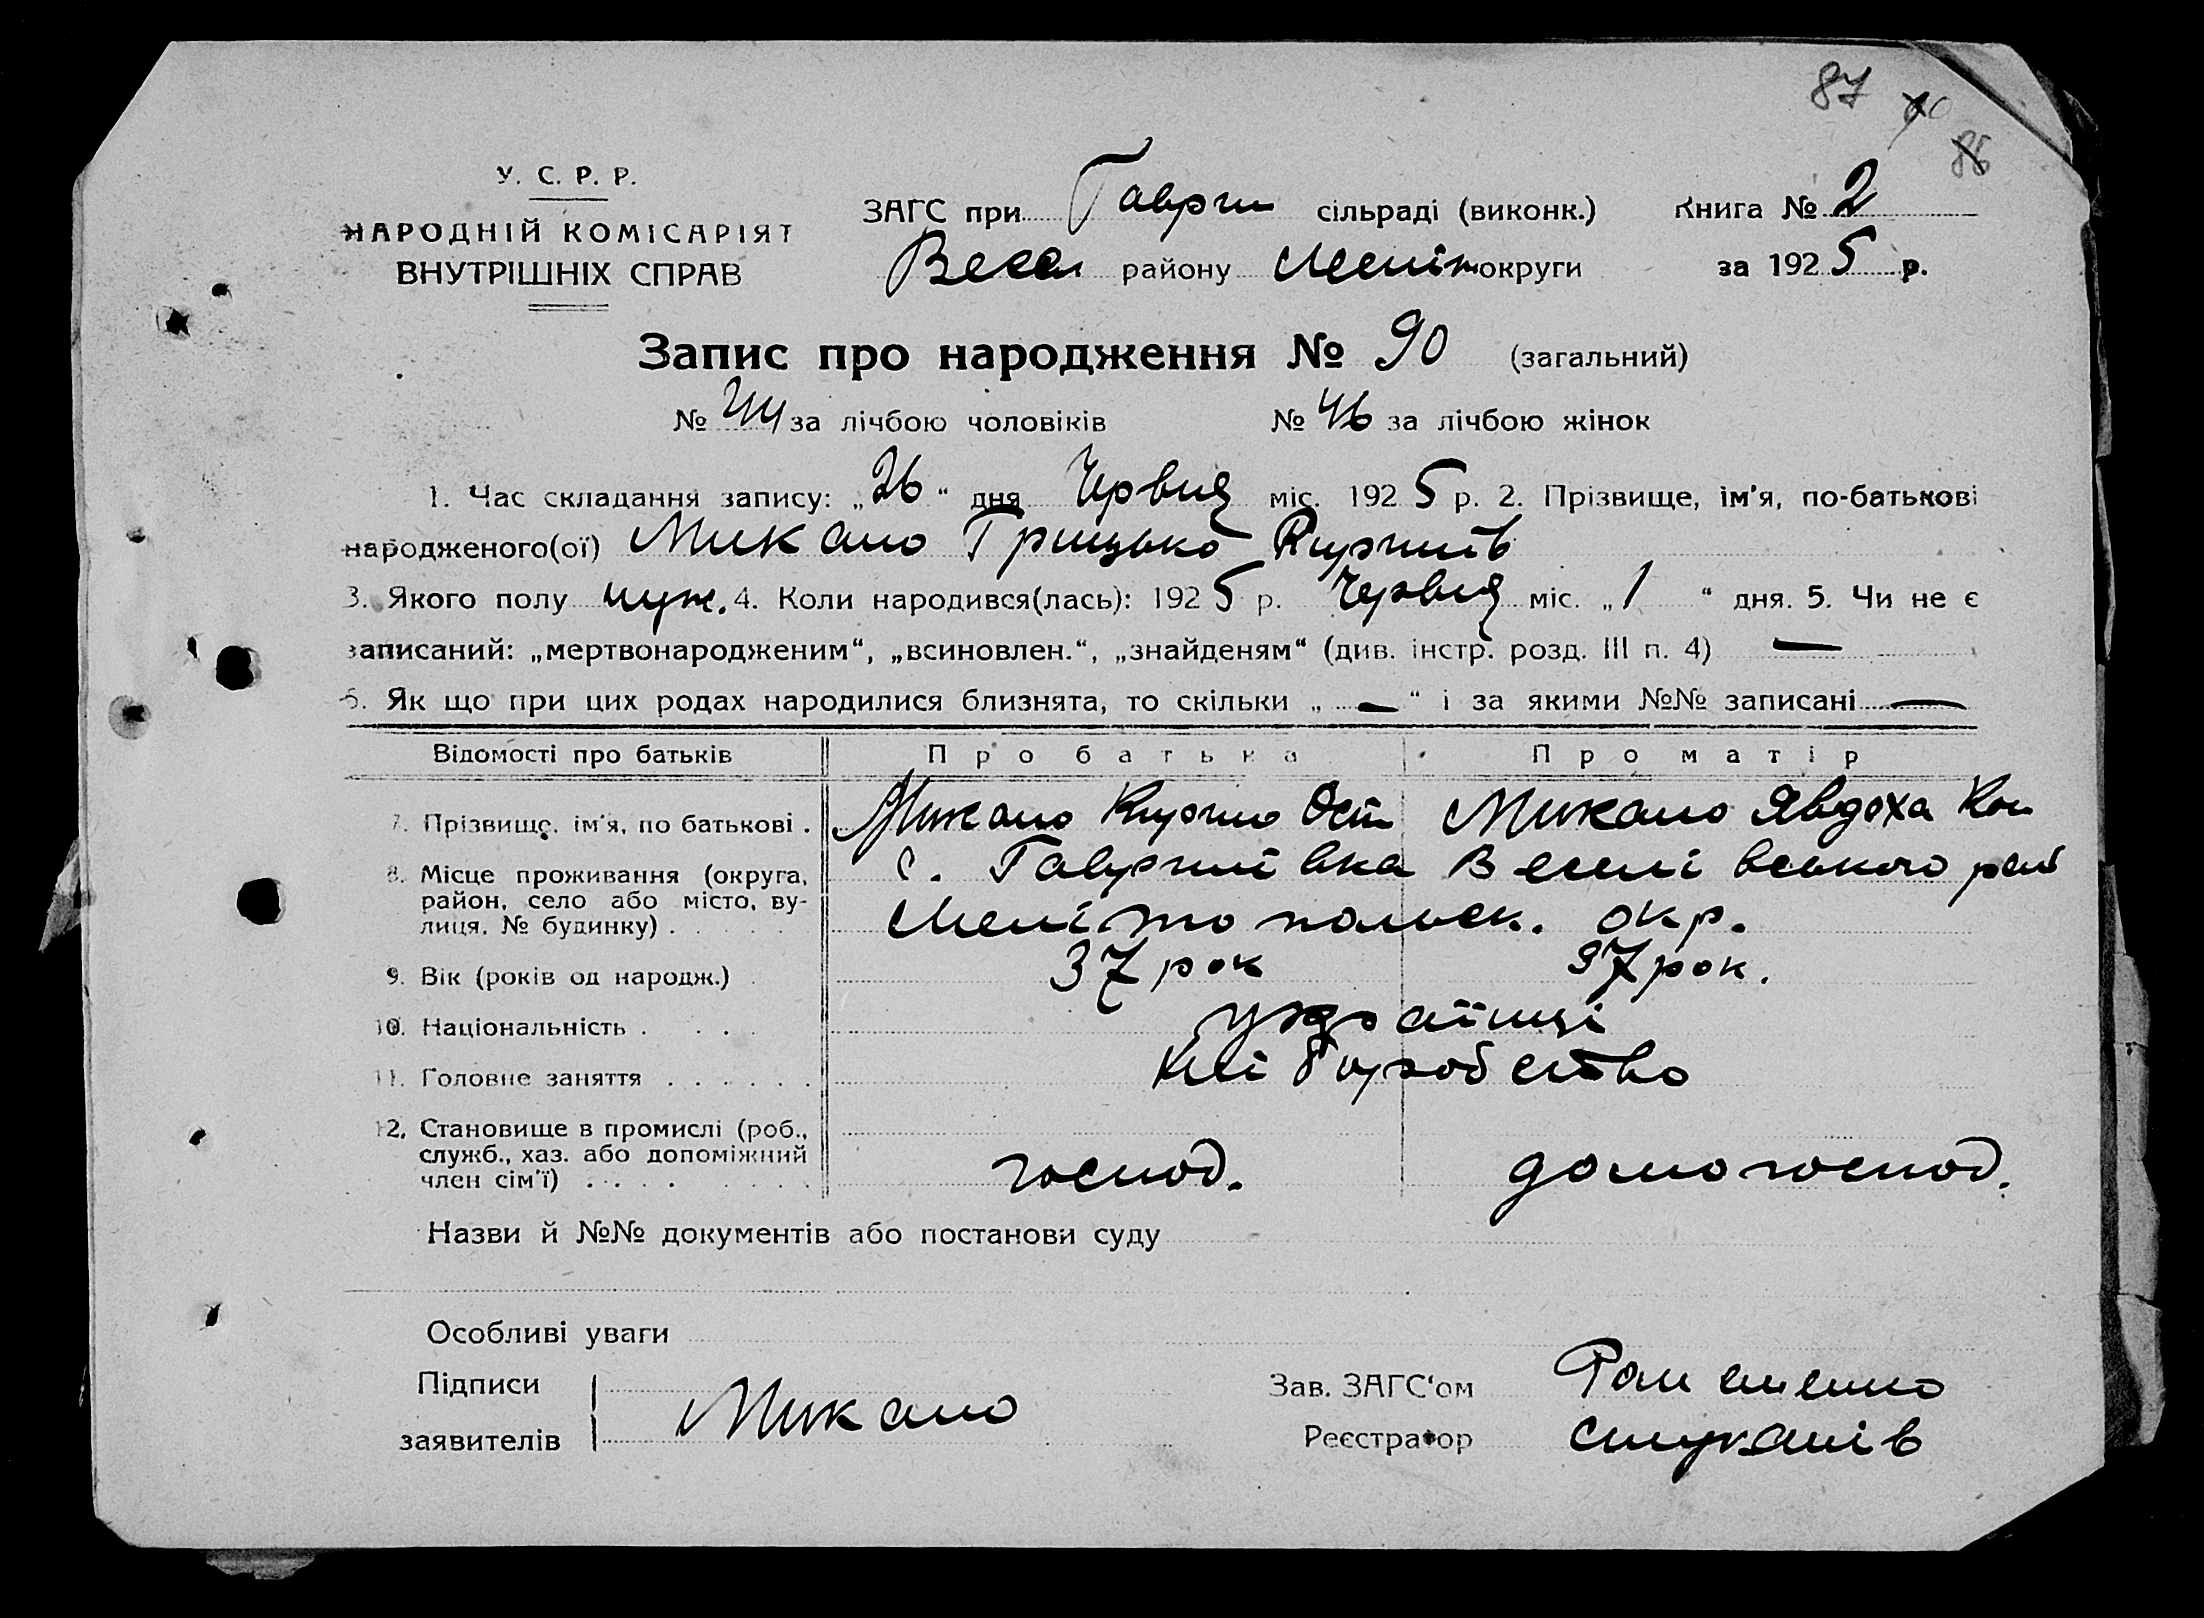 87 90
86
У. С. Р. Р.
НАРОДНІЙ КОМІСАРІЯТ
ВНУТРІШНІХ СПРАВ
ЗАГС при Гаврил сільраді (виконк.) Книга № 2
Весел району Меліт округи за 1925 р.
Запис про народження № 90 (загальний)
№ 44 за лічбою чоловіків № 46 за лічбою жінок
1. Час складання запису: „26“ дня Червня міс. 1925 р. 2. Прізвище, ім'я, по-батькові
народженого(ої) Микало Грицько Кирилів
3. Якого полу муж. 4. Коли народився(лась): 1925 р. Червня міс. „1“ дня. 5. Чи не є
записаний: „мертвонародженим“, „всиновлен.“, „знайденям“ (див. інстр. розд. III п. 4) —
6. Як що при цих родах народилися близнята, то скільки „—“ і за якими №№ записані —
Відомості про батьків Про батька Про матір
7. Прізвище, ім'я, по батькові . Микало Кирило Ост Микало Явдоха Кон
8. Місце проживання (округа, район, село або місто, вулиця, № будинку) . с. Гаврилівка Веселівського рай
Мелітопольськ. окр.
9. Вік (років од народж.) 37 рок 37 рок.
10. Національність . . . . українці
11. Головне заняття . . . . . . хліборобство
12. Становище в промислі (роб.,
служб., хаз. або допоміжний
член сім'ї) . . . . господ. домогоспод.
Назви й №№ документів або постанови суду
Особливі уваги
Підписи
заявителів Микало
Зав. ЗАГС'ом
Реєстратор